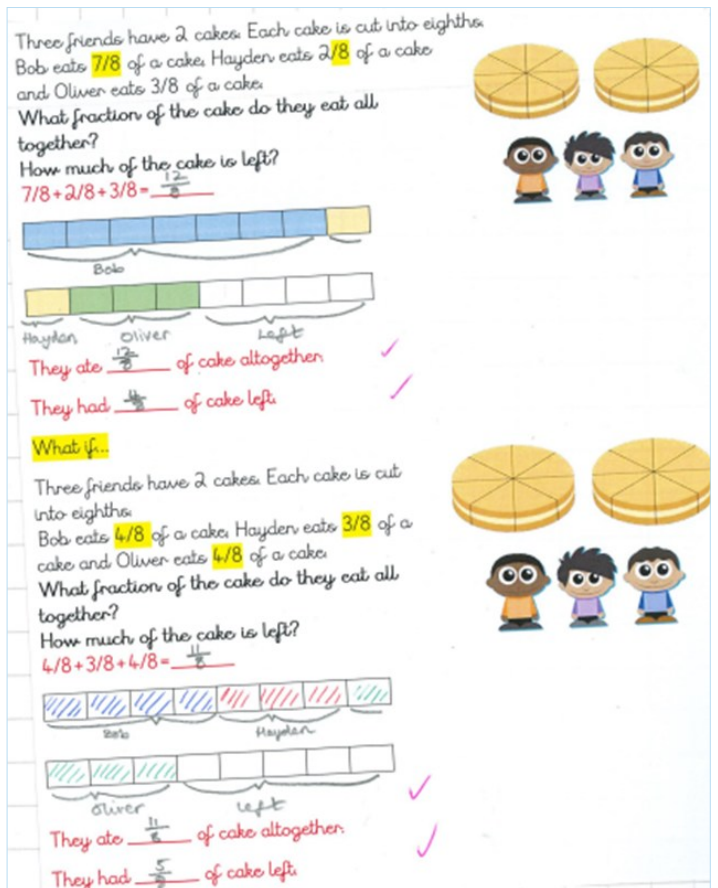 Three friends have 2 cakes. Each cake is cut into eighths.
Bob eats 7/8 of a cake, Hayden eats 2/8 of a cake
and Oliver eats 3/8 of a cake.
What fraction of the cake do they eat all
together?
How much of the cake is left?
7/8 + 2/8 + 3/8 = 12/8
Bob
Hayden Oliver Left
They ate 12/8 of cake altogether.
They had 4/8 of cake left.
What if...
Three friends have 2 cakes. Each cake is cut
into eighths.
Bob eats 4/8 of a cake, Hayden eats 3/8 of a
cake and Oliver eats 4/8 of a cake.
What fraction of the cake do they eat all
together?
How much of the cake is left?
4/8 + 3/8 + 4/8 = 11/8
Bob Hayden
Oliver Left
They ate 11/8 of cake altogether.
They had 5/8 of cake left.